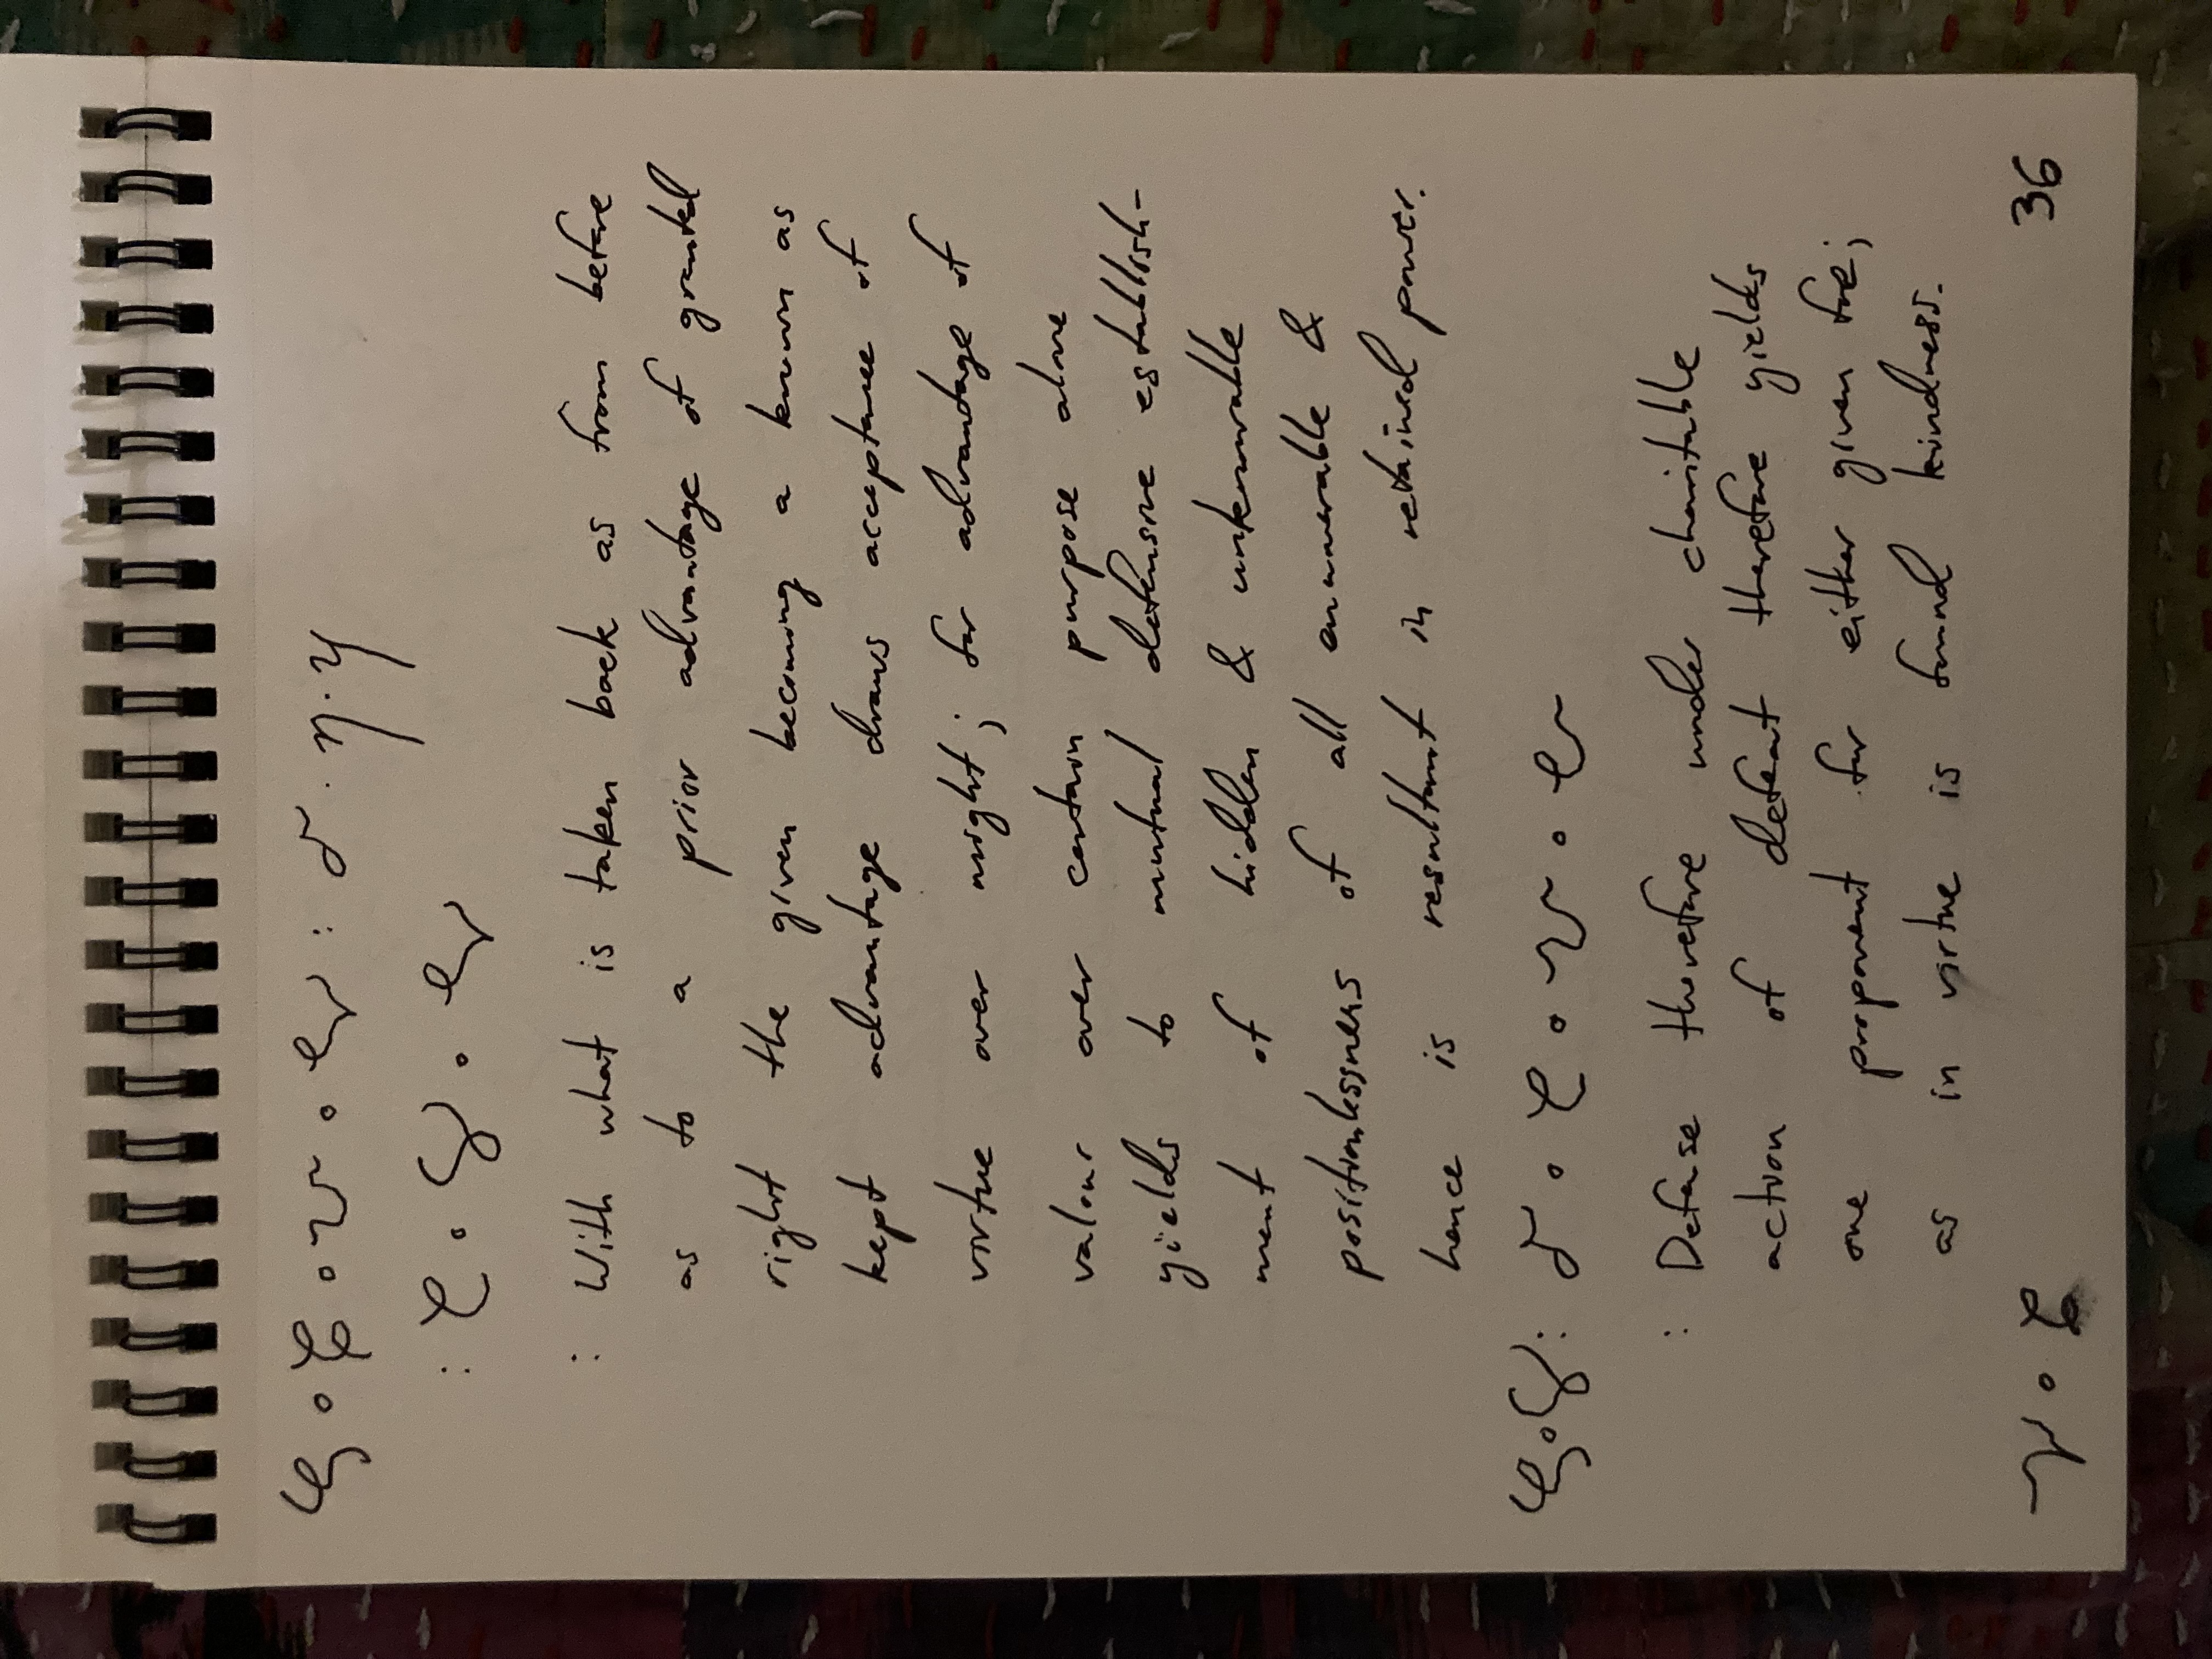 : With what is taken back as from before
as to a prior advantage of granted
right the given becoming a known as
kept advantage draws acceptance of
virtue over might; for advantage of
valour over certain purpose alone
yields to mutual defensive establish-
ment of hidden & unknowable
positionlessness of all enumerable &
hence is resultant in retained power.
: Defense therefore under charitable
action of defeat therefore yields
one proponent for either given foe;
as in virtue is found kindness.
36